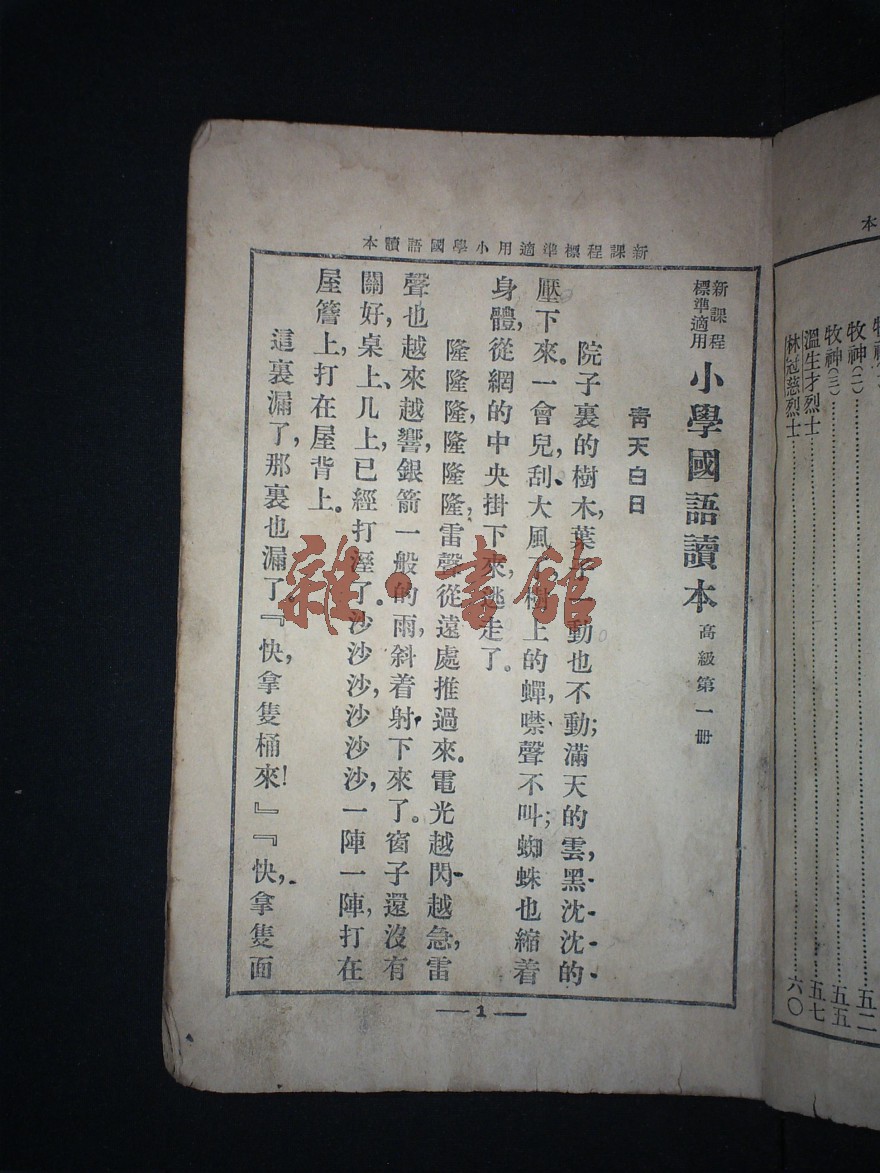 新課程標準適用小學國語讀本
新課程
標準適用
小學國語讀本 高級第一册
青天白日
院子裏的樹木,葉子一動也不動;滿天的雲,黑沈沈的
壓下來。一會兒,刮大風了,樹上的蟬,噤聲不叫;蜘蛛也縮着
身體,從網的中央掛下來,逃走了。
隆隆隆,隆隆隆,雷聲從遠處推過來。電光越閃越急,雷
聲也越來越響,銀箭一般的雨,斜着射下來了。窗子還沒有
關好,桌上,几上,已經打溼了。沙沙沙,沙沙沙,一陣一陣,打在
屋簷上,打在屋背上。
這裏漏了,那裏也漏了。『快,拿隻桶來!』『快,拿隻面
—1—
本
牧神(二)五二
牧神(三)五五
溫生才烈士五七
林冠慈烈士六〇
雜·書館